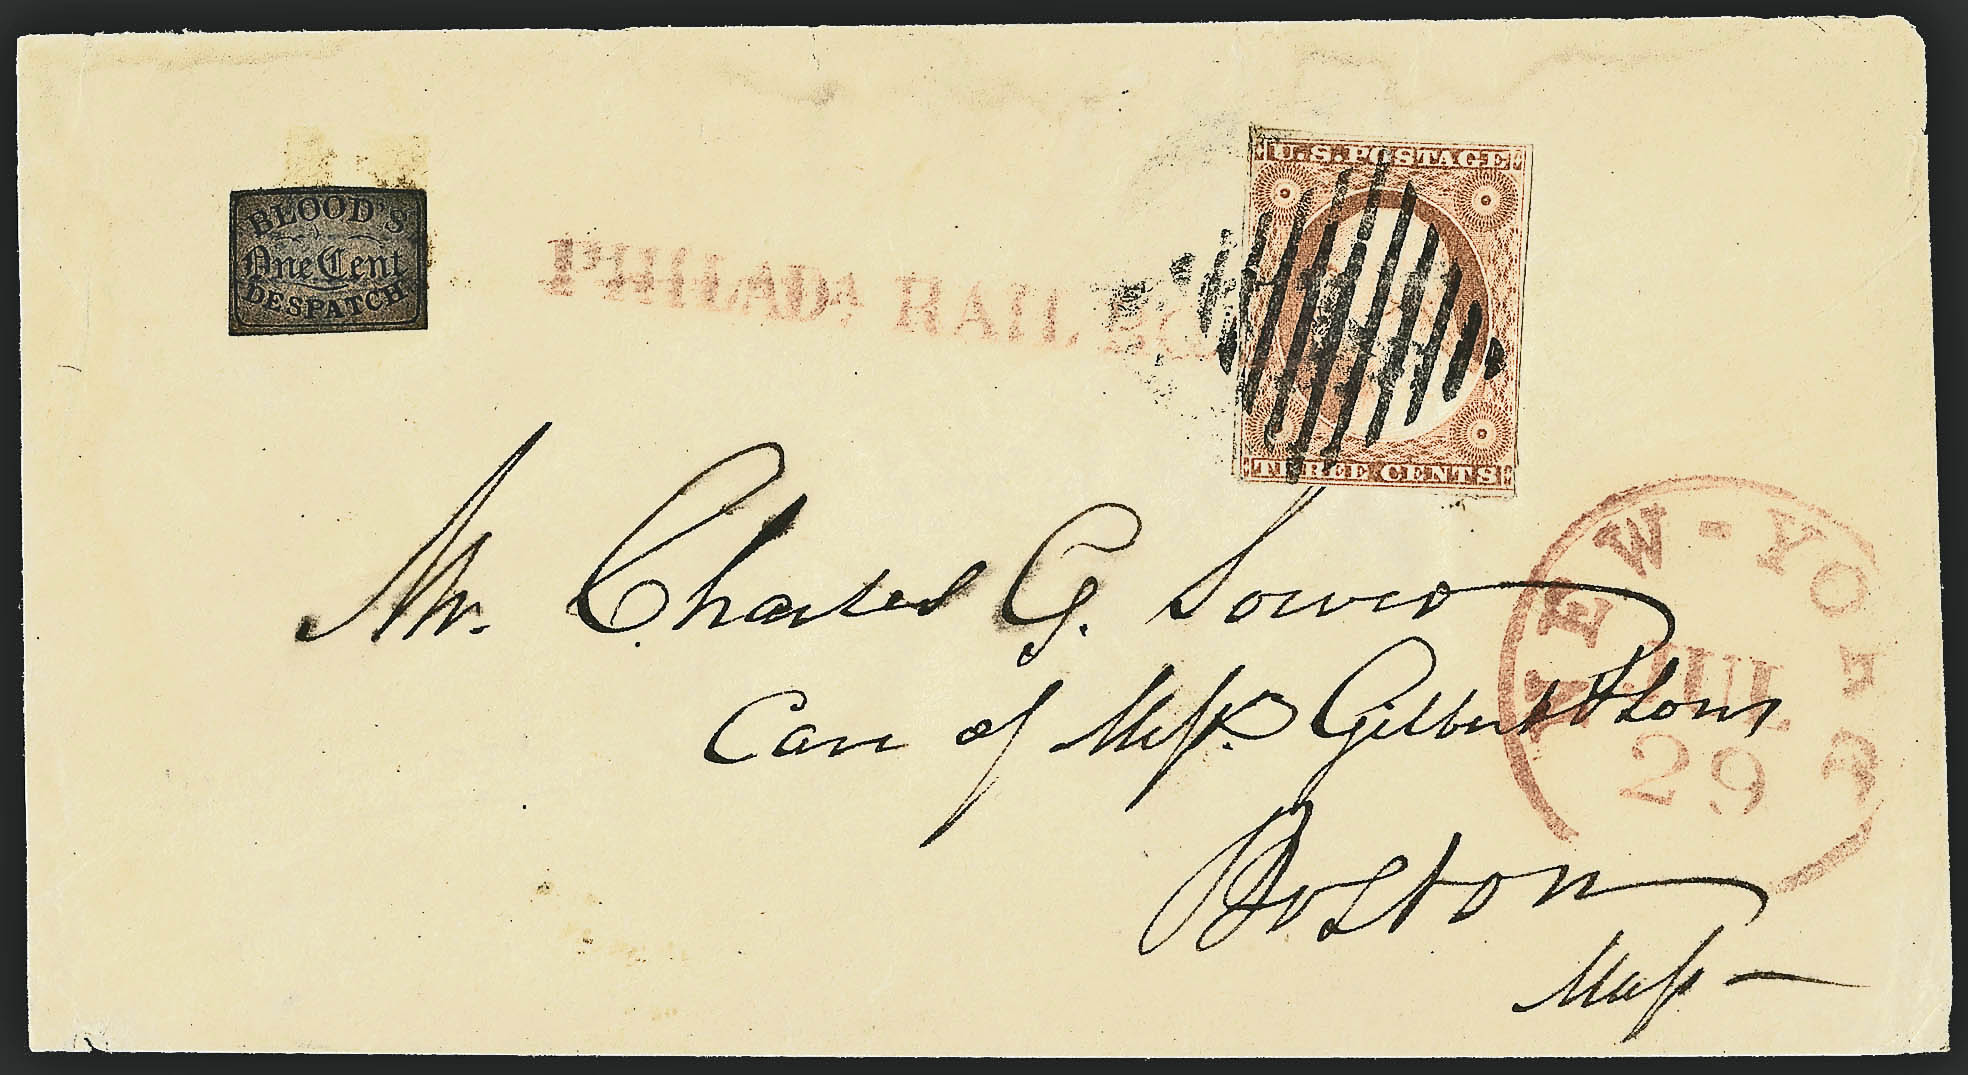 BLOOD'S
One Cent
DESPATCH
PHILADA RAIL
U.S. POSTAGE
THREE CENTS
NEW-YORK
JUL
29
Mr. Charles G. Sower
Care of Mess. Gilbert & Sons
Boston
Mass